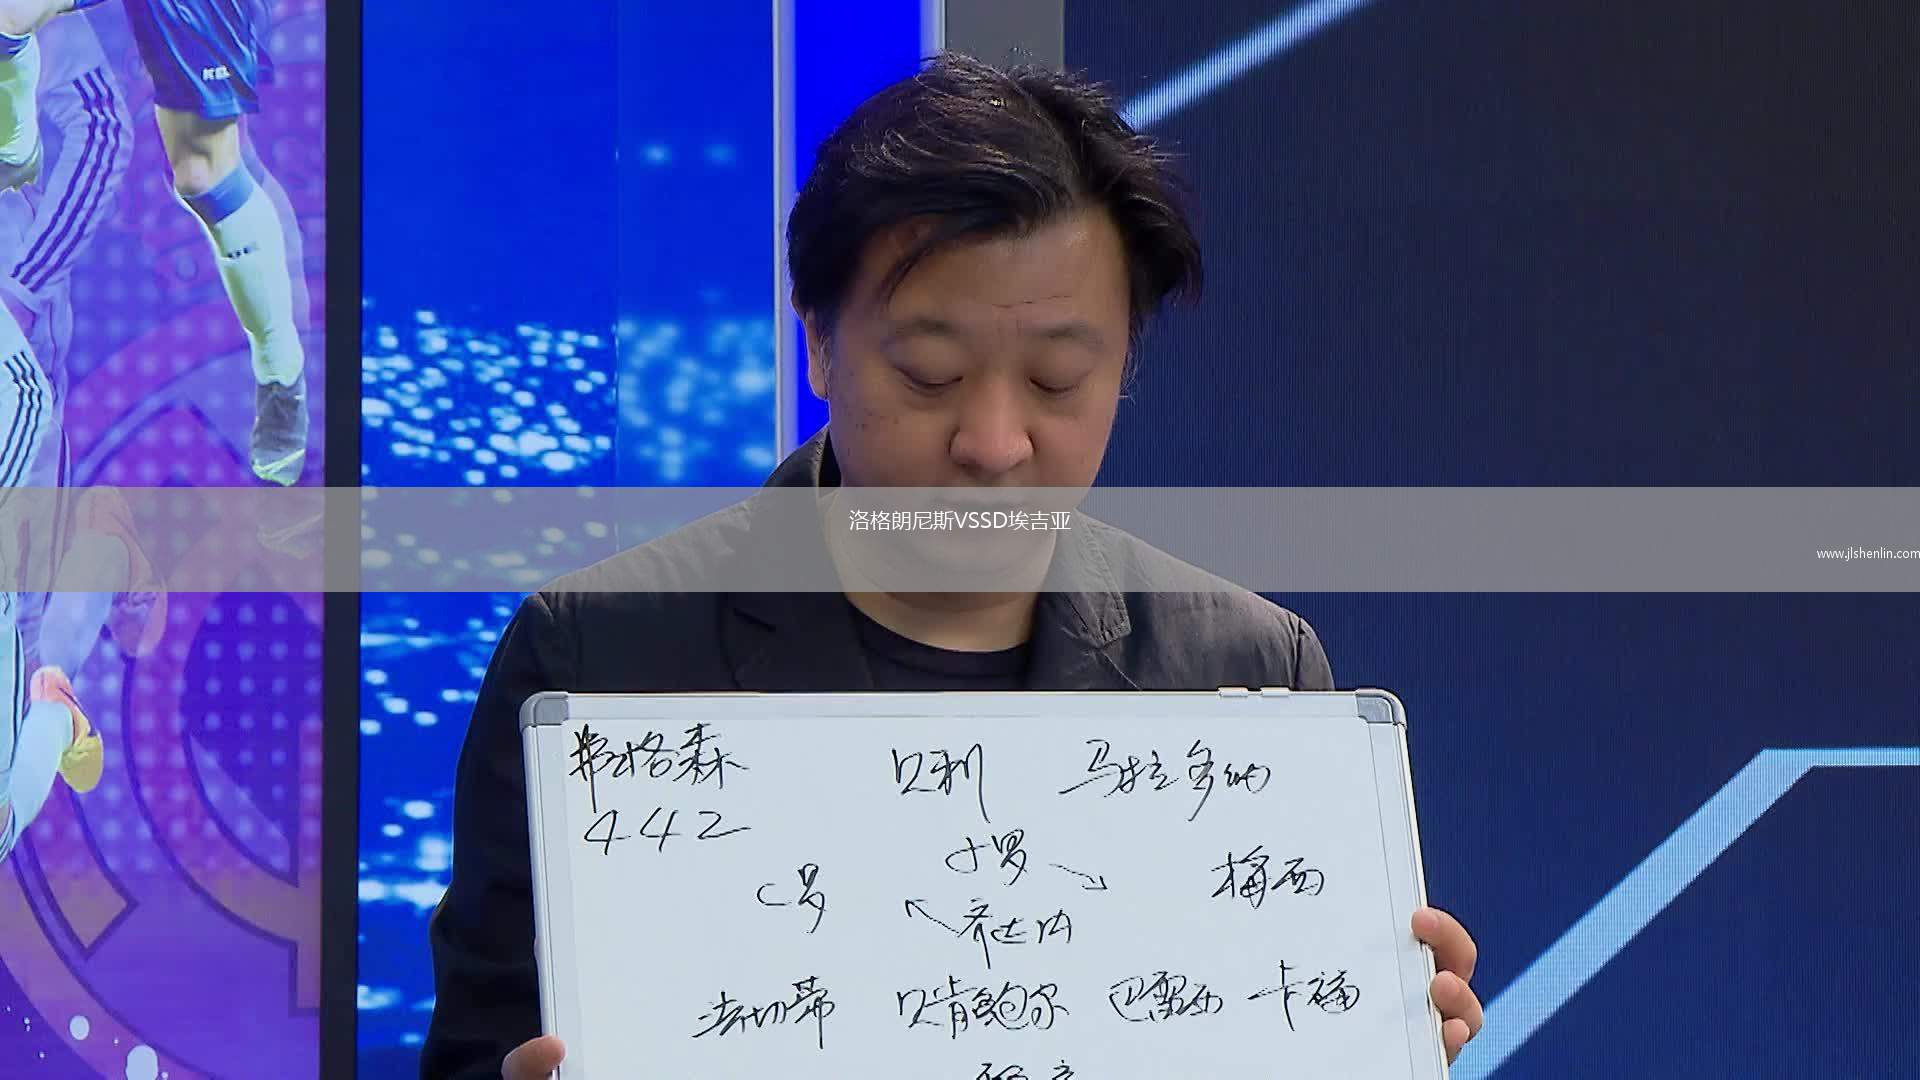 洛格朗尼斯VSSD埃吉亚
www.jlshenlin.com
弗格森 贝利 马拉多纳
442
小罗
C罗 梅西
齐达内
法切蒂 贝肯鲍尔 巴雷西 卡福